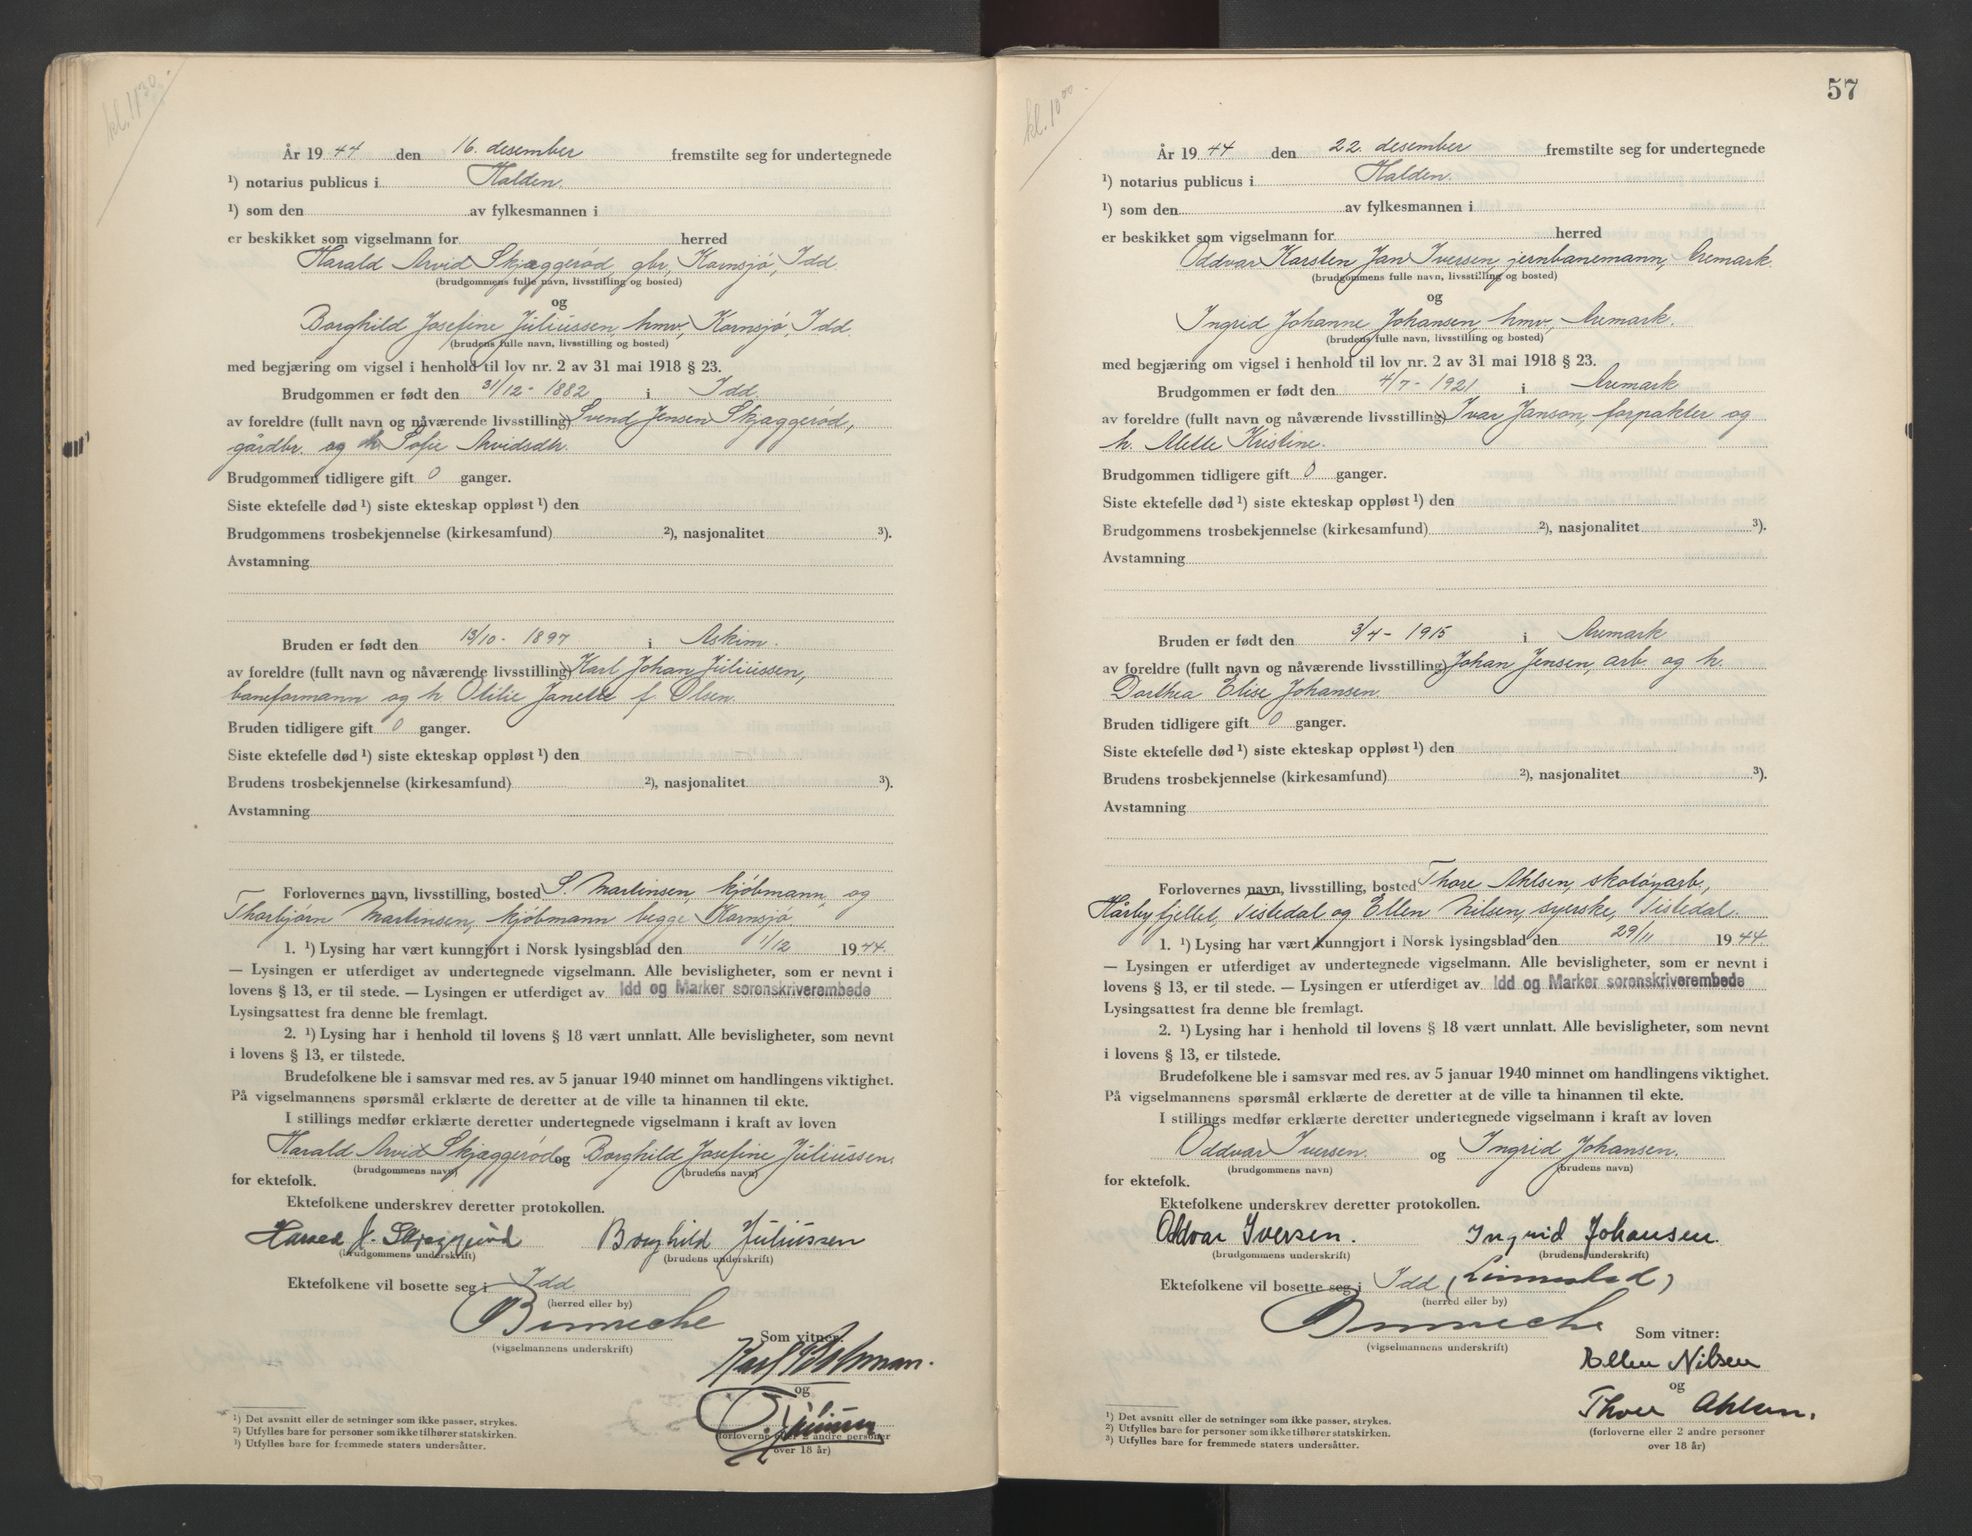 kl. 11³⁰.
År 19 44 den 16. desember fremstilte seg for undertegnede
¹) notarius publicus i Halden.
¹) som den av fylkesmannen i
er beskikket som vigselmann for herred
Harald Arvid Skjæggerød, gbr, Kornsjø, Idd.
(brudgommens fulle navn, livsstilling og bosted)
og
Borghild Josefine Juliussen, hmv, Kornsjø, Idd.
(brudens fulle navn, livsstilling og bosted)
med begjæring om vigsel i henhold til lov nr. 2 av 31 mai 1918 § 23.
Brudgommen er født den 31/12 - 1882 i Idd.
av foreldre (fullt navn og nåværende livsstilling) Svend Jensen Skjæggerød,
gårdbr. og h. Sofie Arvidsdtr.
Brudgommen tidligere gift 0 ganger.
Siste ektefelle død ¹) siste ekteskap oppløst ¹) den
Brudgommens trosbekjennelse (kirkesamfund) ²), nasjonalitet ³).
Avstamning
Bruden er født den 13/10 - 1897 i Askim.
av foreldre (fullt navn og nåværende livsstilling) Karl Johan Juliussen,
baneformann og h. Otilie Janette f. Olsen.
Bruden tidligere gift 0 ganger.
Siste ektefelle død ¹) siste ekteskap oppløst ¹) den
Brudens trosbekjennelse (kirkesamfund) ²), nasjonalitet ³).
Avstamning
Forlovernes navn, livsstilling, bosted S. Martinsen, kjøbmann og
Thorbjørn Martinsen, kjøbmann begge Kornsjø.
1. ¹) Lysing har vært kunngjort i Norsk lysingsblad den 1/12 1944.
— Lysingen er utferdiget av undertegnede vigselmann. Alle bevisligheter, som er nevnt i
lovens § 13, er til stede. — Lysingen er utferdiget av Idd og Marker sorenskriverembede
Lysingsattest fra denne ble fremlagt.
2. ¹) Lysing har i henhold til lovens § 18 vært unnlatt. Alle bevisligheter, som nevnt
i lovens § 13, er tilstede.
Brudefolkene ble i samsvar med res. av 5 januar 1940 minnet om handlingens viktighet.
På vigselmannens spørsmål erklærte de deretter at de ville ta hinannen til ekte.
I stillings medfør erklærte deretter undertegnede vigselmann i kraft av loven
Harald Arvid Skjæggerød og Borghild Josefine Juliussen.
(brudgommens navn) (brudens navn)
for ektefolk.
Ektefolkene underskrev deretter protokollen.
Borghild Juliussen
(brudgommens underskrift) (brudens underskrift)
Ektefolkene vil bosette seg i Idd
(herred eller by)
Som vitner:
(vigselmannens underskrift)
og
(forloverne eller 2 andre personer
over 18 år)
¹) Det avsnitt eller de setninger som ikke passer, strykes.
²) Utfylles bare for personer som ikke tilhører statskirken.
³) Utfylles bare for fremmede staters undersåtter.
57
kl. 10⁰⁰.
År 19 44 den 22. desember fremstilte seg for undertegnede
¹) notarius publicus i Halden.
¹) som den av fylkesmannen i
er beskikket som vigselmann for herred
Oddvar Karsten Jan Iversen, jernbanemann, Aremark.
(brudgommens fulle navn, livsstilling og bosted)
og
Ingrid Johanne Johansen, hmv, Aremark.
(brudens fulle navn, livsstilling og bosted)
med begjæring om vigsel i henhold til lov nr. 2 av 31 mai 1918 § 23.
Brudgommen er født den 4/7 - 1921 i Aremark
av foreldre (fullt navn og nåværende livsstilling) Ivar Janson, forpakter og
h. Alette Kristine.
Brudgommen tidligere gift 0 ganger.
Siste ektefelle død ¹) siste ekteskap oppløst ¹) den
Brudgommens trosbekjennelse (kirkesamfund) ²), nasjonalitet ³).
Avstamning
Bruden er født den 3/4 - 1915 i Aremark
av foreldre (fullt navn og nåværende livsstilling) Johan Jensen, arb. og h.
Dorthea Elise Johansen.
Bruden tidligere gift 0 ganger.
Siste ektefelle død ¹) siste ekteskap oppløst ¹) den
Brudens trosbekjennelse (kirkesamfund) ²), nasjonalitet ³).
Avstamning
Forlovernes navn, livsstilling, bosted Thore Ahlsen, skotøyarb.,
Hårbyfjellet, Tistedal og Ellen Nilsen, syerske, Tistedal.
1. ¹) Lysing har vært kunngjort i Norsk lysingsblad den 29/11 1944.
— Lysingen er utferdiget av undertegnede vigselmann. Alle bevisligheter, som er nevnt i
lovens § 13, er til stede. — Lysingen er utferdiget av Idd og Marker sorenskriverembede
Lysingsattest fra denne ble fremlagt.
2. ¹) Lysing har i henhold til lovens § 18 vært unnlatt. Alle bevisligheter, som nevnt
i lovens § 13, er tilstede.
Brudefolkene ble i samsvar med res. av 5 januar 1940 minnet om handlingens viktighet.
På vigselmannens spørsmål erklærte de deretter at de ville ta hinannen til ekte.
I stillings medfør erklærte deretter undertegnede vigselmann i kraft av loven
Oddvar Iversen. og Ingrid Johansen.
(brudgommens navn) (brudens navn)
for ektefolk.
Ektefolkene underskrev deretter protokollen.
Oddvar Iversen. Ingrid Johansen.
(brudgommens underskrift) (brudens underskrift)
Ektefolkene vil bosette seg i Idd
(herred eller by)
Som vitner:
(vigselmannens underskrift)
Ellen Nilsen
og
Thore Ahlsen.
(forloverne eller 2 andre personer
over 18 år)
¹) Det avsnitt eller de setninger som ikke passer, strykes.
²) Utfylles bare for personer som ikke tilhører statskirken.
³) Utfylles bare for fremmede staters undersåtter.